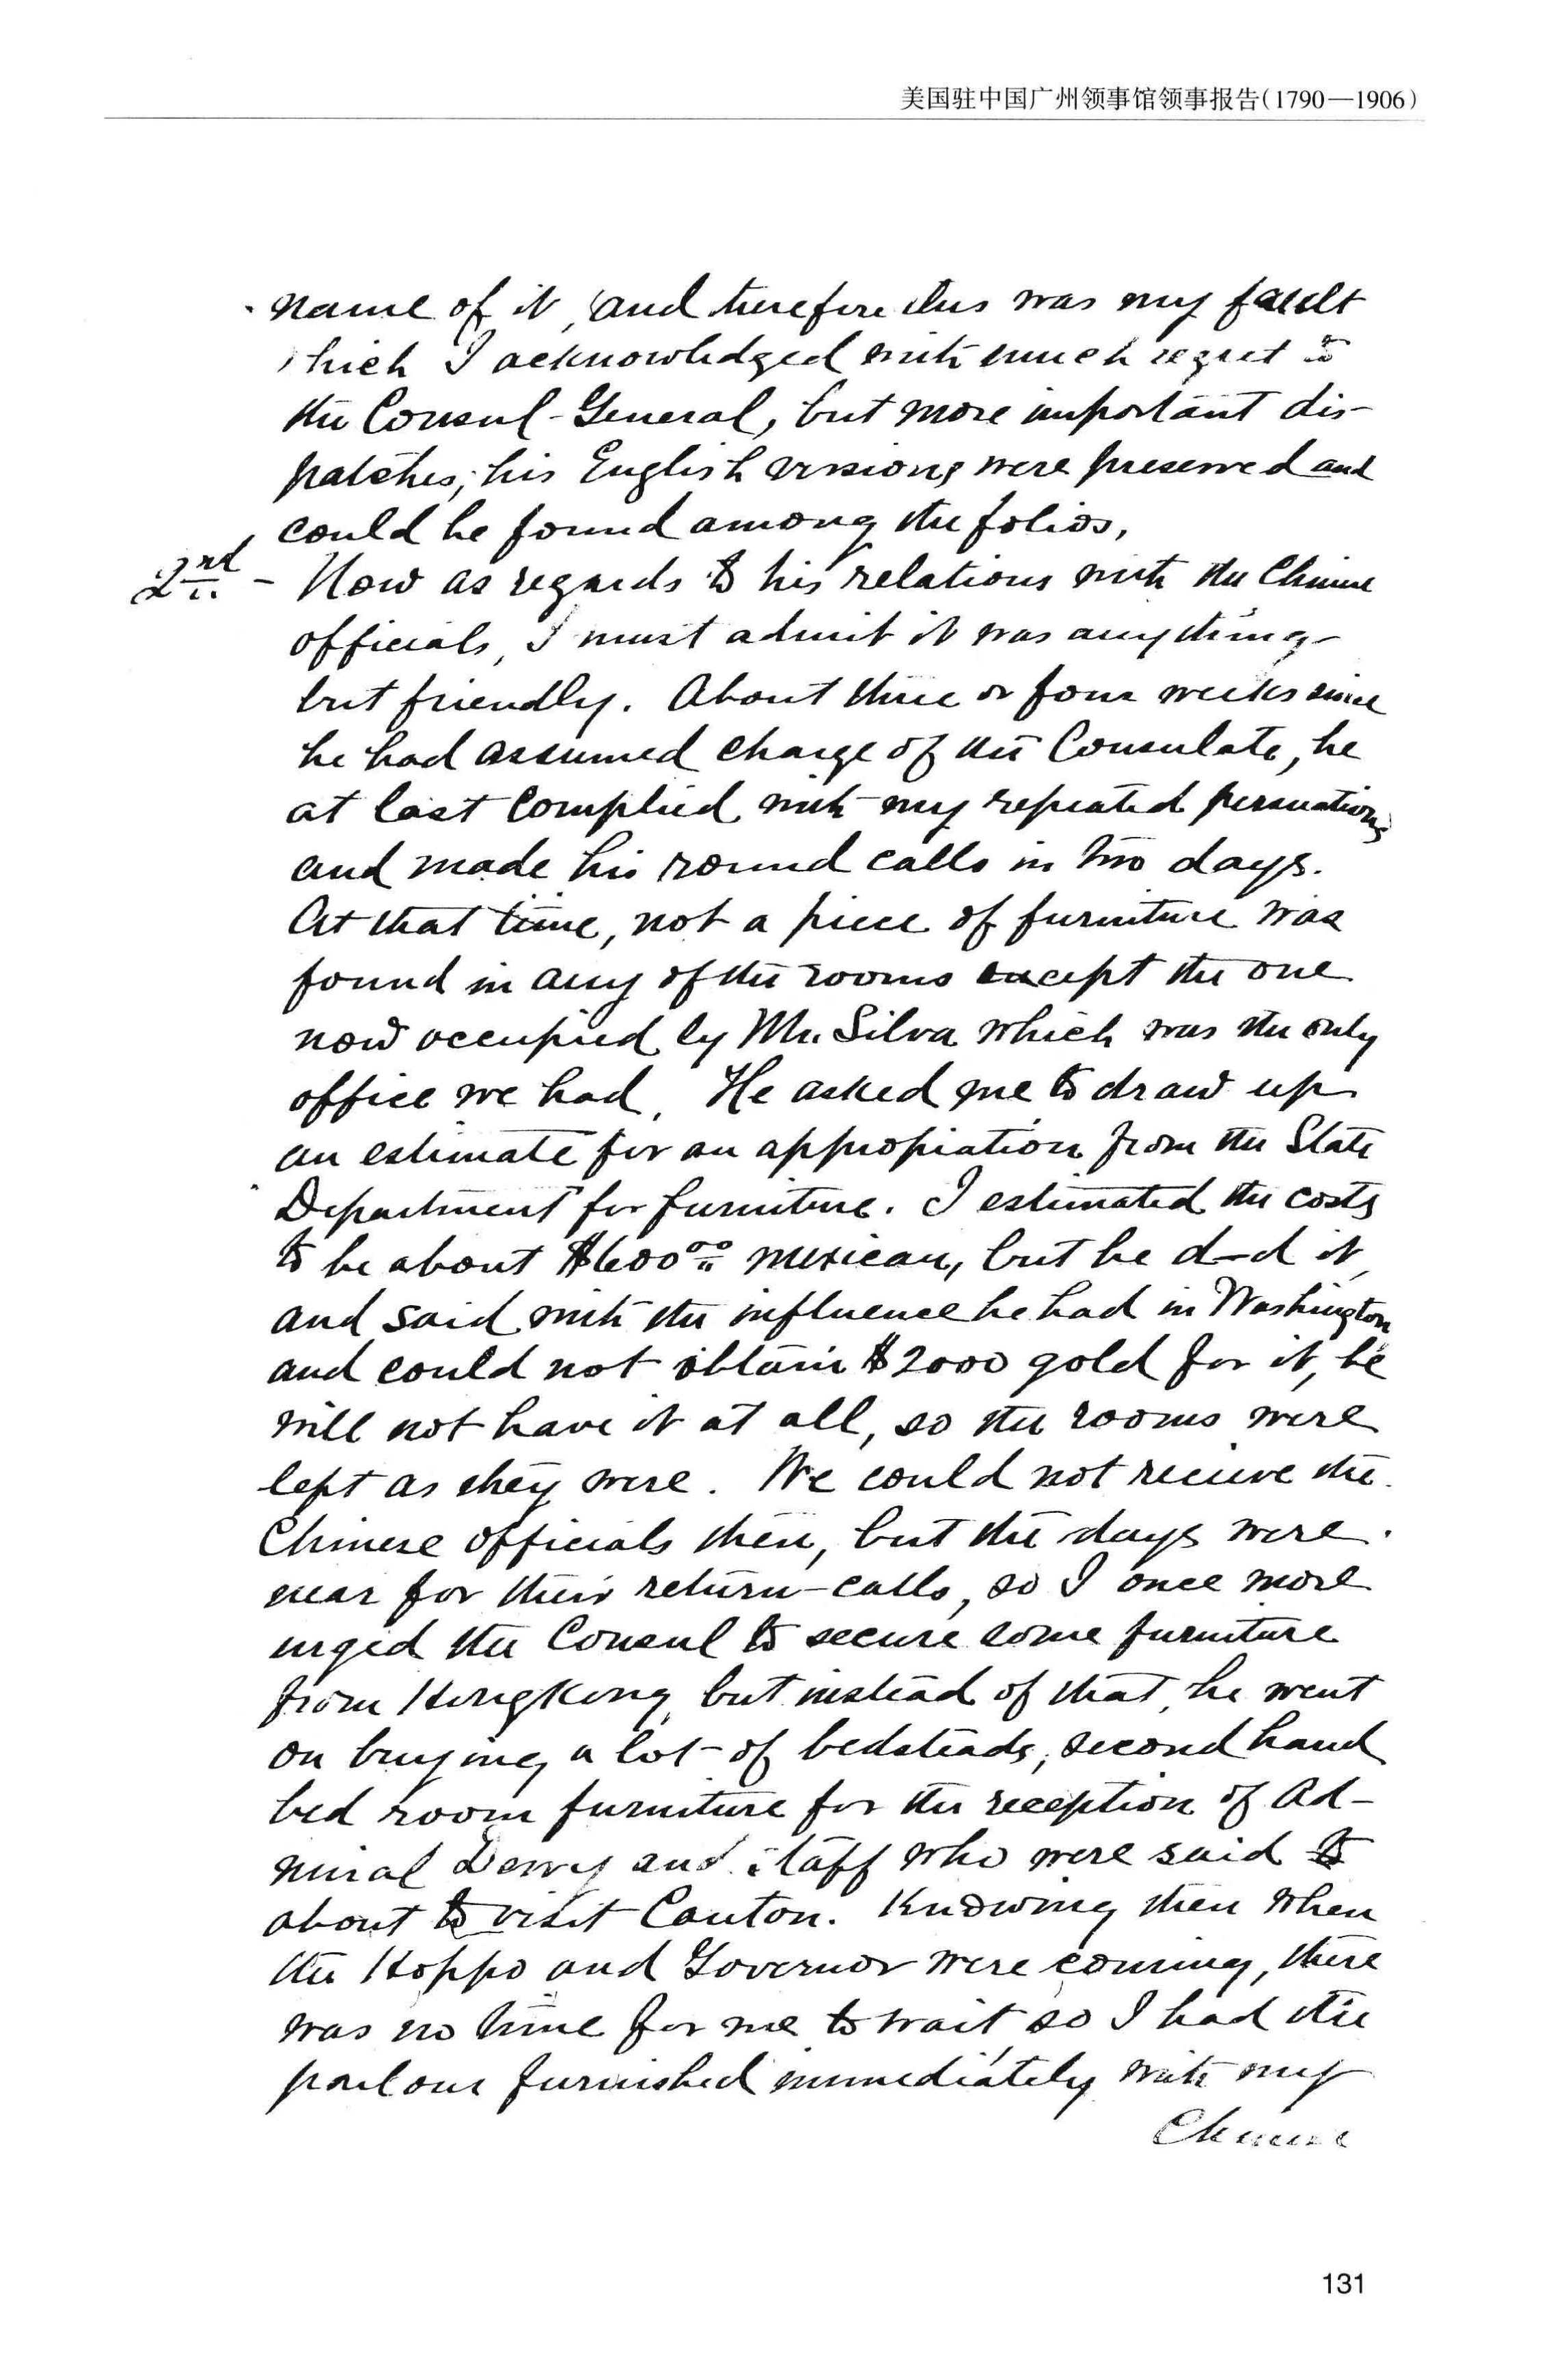 美国驻中国广州领事馆领事报告(1790—1906)
name of it, and therefore this was my fault
which I acknowledged with much regret to
the Consul-General, but more important dis-
patches, his English versions were preserved and
could be found among the folios,
2nd - Now as regards to his relations with the Chinese
officials, I must admit it was anything
but friendly. About three or four weeks since
he had assumed charge of the Consulate, he
at last complied with my repeated persuations
and made his round calls in two days.
At that time, not a piece of furniture was
found in any of the rooms except the one
now occupied by Mr. Silva which was the only
office we had. He asked me to draw up
an estimate for an appropiation from the State
Department for furniture. I estimated the costs
to be about $600.00 mexican, but he d—d it,
and said with the influence he had in Washington
and could not obtain $2000 gold for it, he
will not have it at all, so the rooms were
left as they were. We could not recieve the
Chinese officials then, but the days were
near for their return-calls, so I once more
urged the Consul to secure some furniture
from Hongkong, but instead of that, he went
on buying a lot of bedsteads, second hand
bed room furniture for the reception of Ad-
miral Dewey and staff who were said to
about to visit Canton. Knowing then when
the Hoppo and Governor were coming, there
was no time for me to wait so I had the
parlour furnished immediately with my
Chinese
131